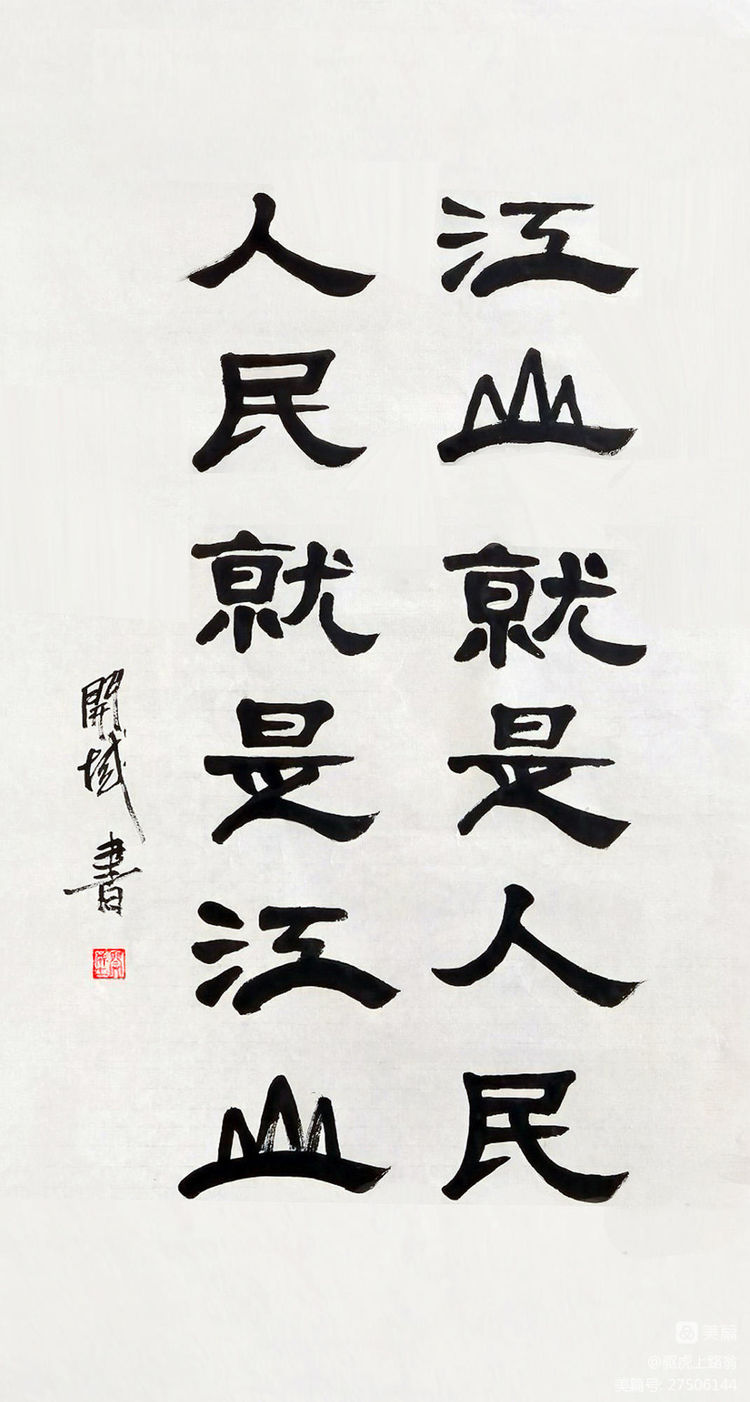 江山就是人民
人民就是江山
開域書
美篇
@驱虎上路翁
美篇号: 27506144